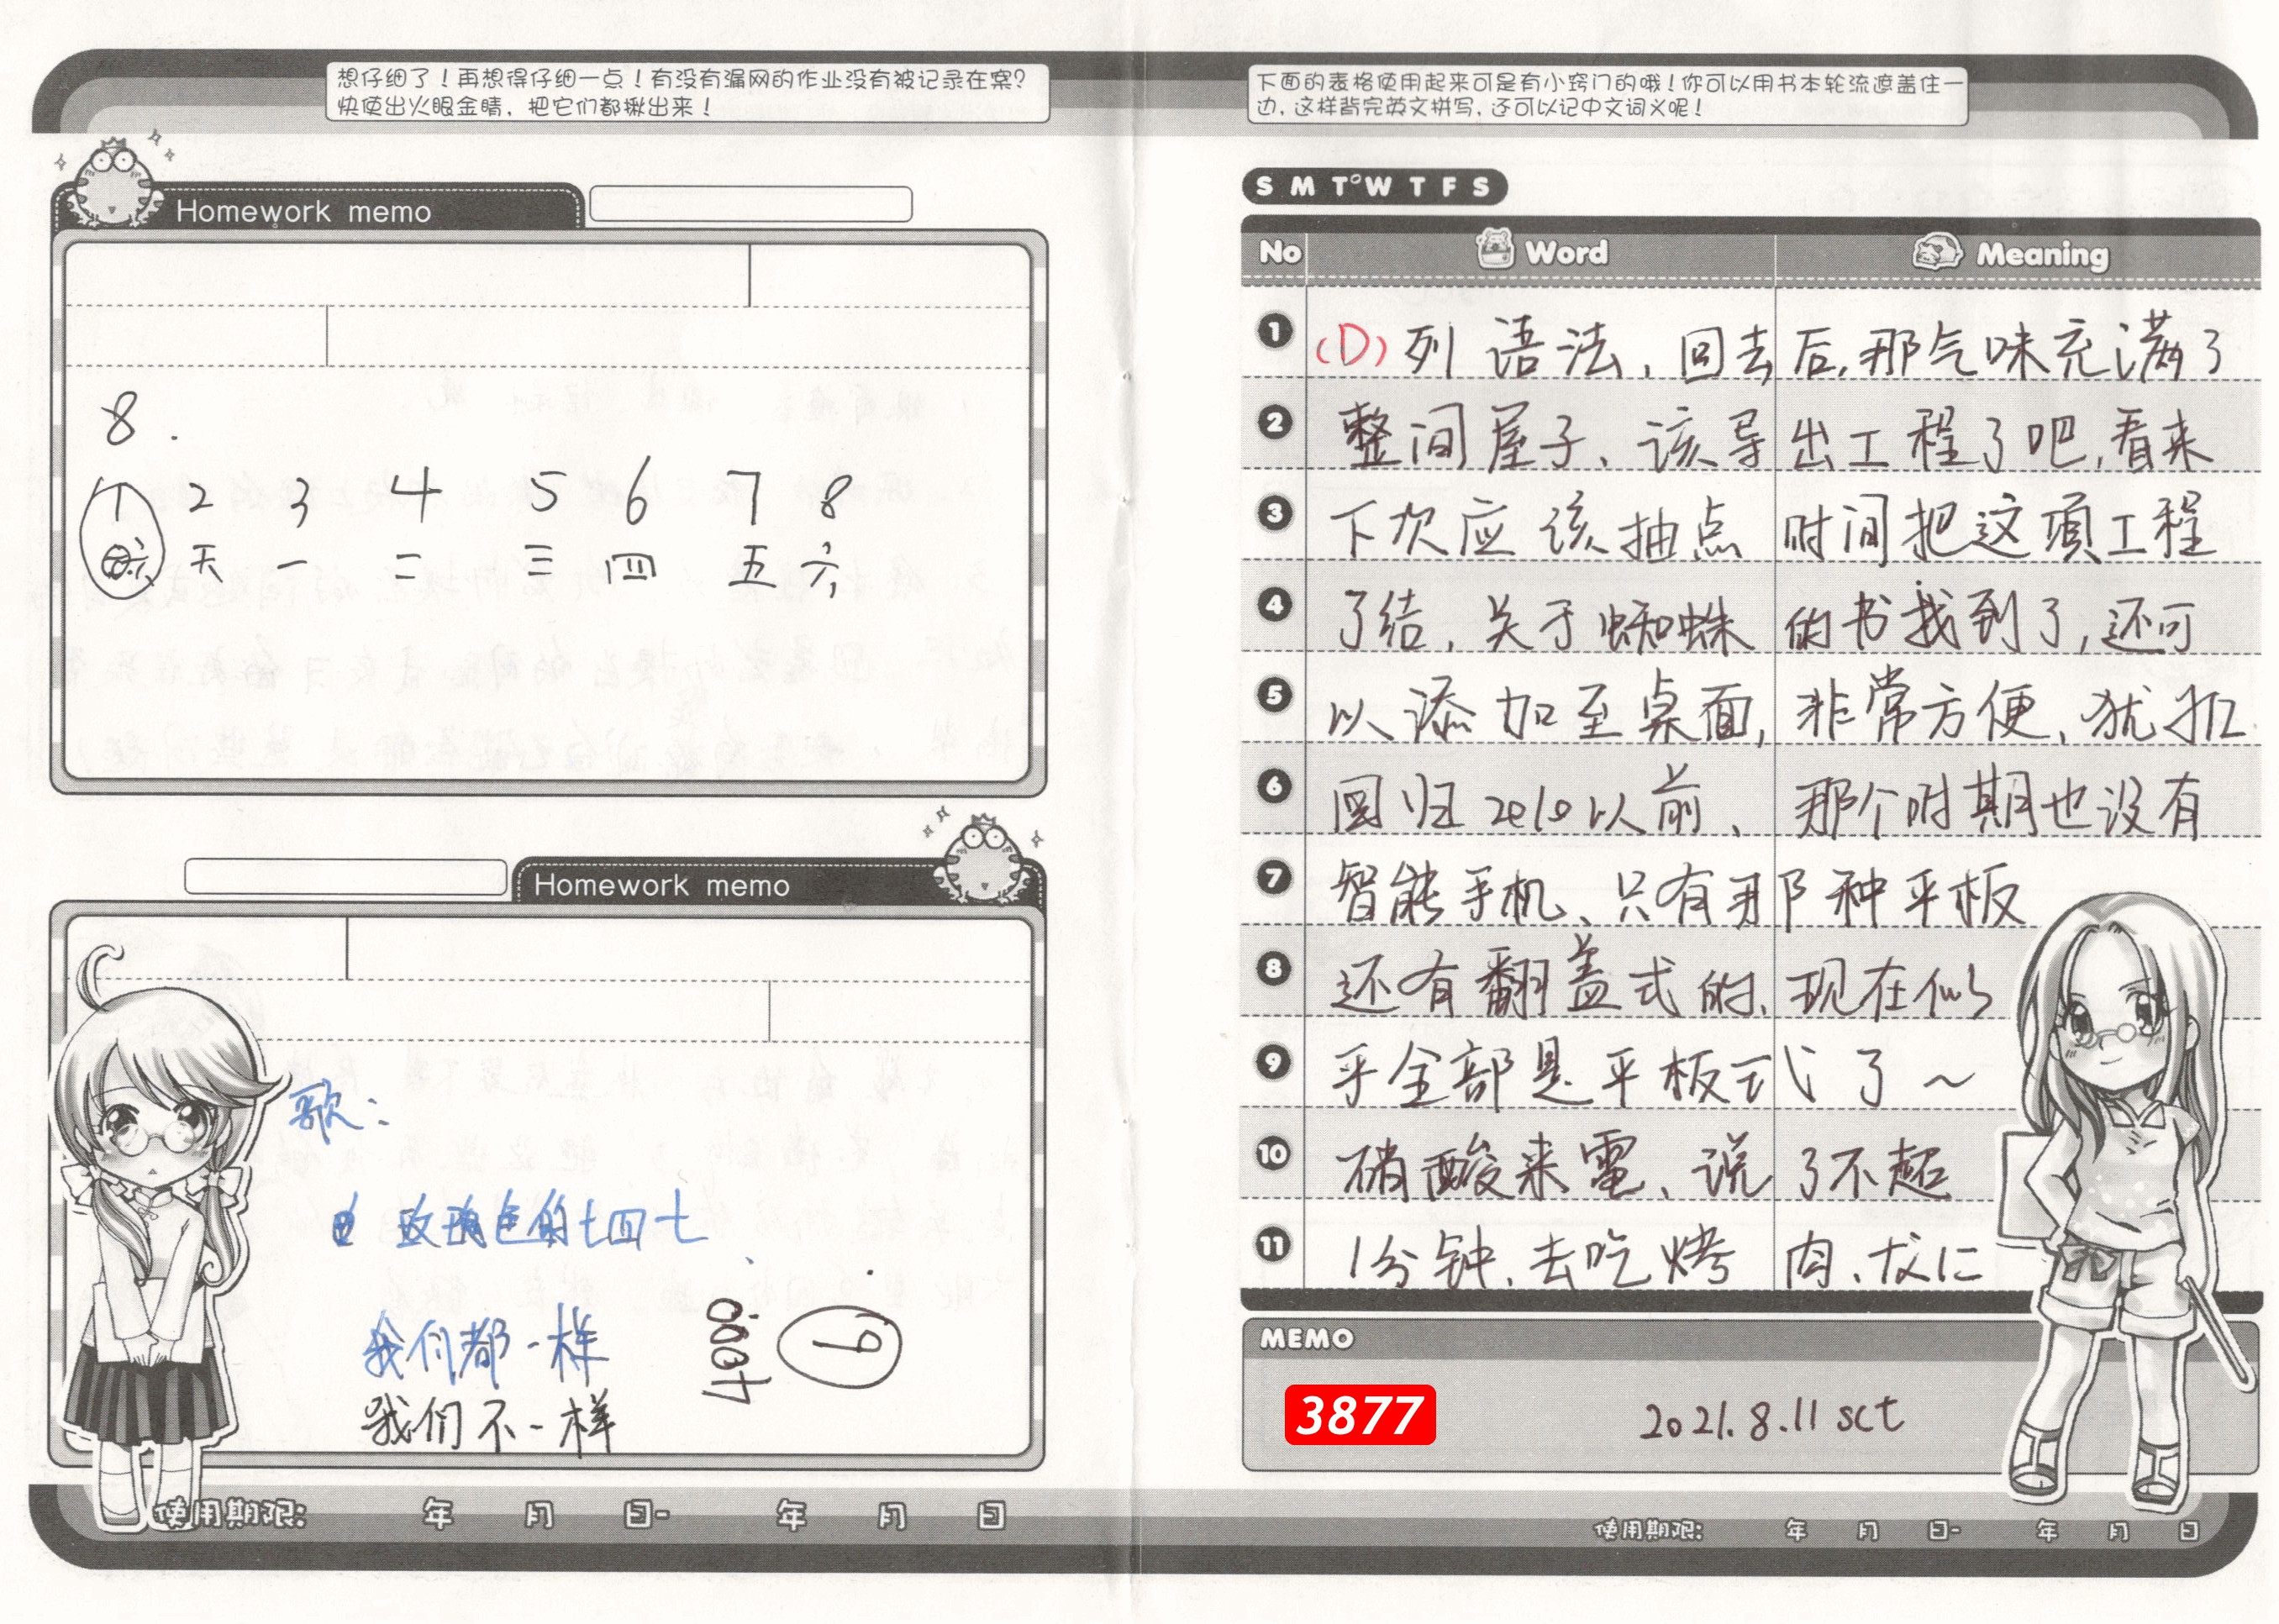 想仔细了！再想得仔细一点！有没有漏网的作业没有被记录在案？
快使出火眼金睛，把它们都揪出来！
Homework memo
8.
1 2 3 4 5 6 7 8
六 天 一 二 三 四 五 六
Homework memo
歌：
玫瑰色的七四七
我们都一样
我们不一样
9
使用期限： 年 月 日- 年 月 日
下面的表格使用起来可是有小窍门的哦！你可以用书本轮流遮盖住一
边，这样背完英文拼写，还可以记中文词义呢！
S M T W T F S
No Word Meaning
1 (D)列语法，回去后，那气味充满了
2 整间屋子、该导出工程了吧，看来
3 下次应该抽点时间把这項工程
4 了结，关于蜘蛛的书找到了，还可
5 以添加至桌面，非常方便、犹如
6 回归2010以前、那个时期也没有
7 智能手机、只有那种平板
8 还有翻盖式的、现在似
9 乎全部是平板式了～
10 硝酸来電、说了不超
11 1分钟、去吃烤肉、
MEMO
3877
2021.8.11 sct
使用期限： 年 月 日- 年 月 日